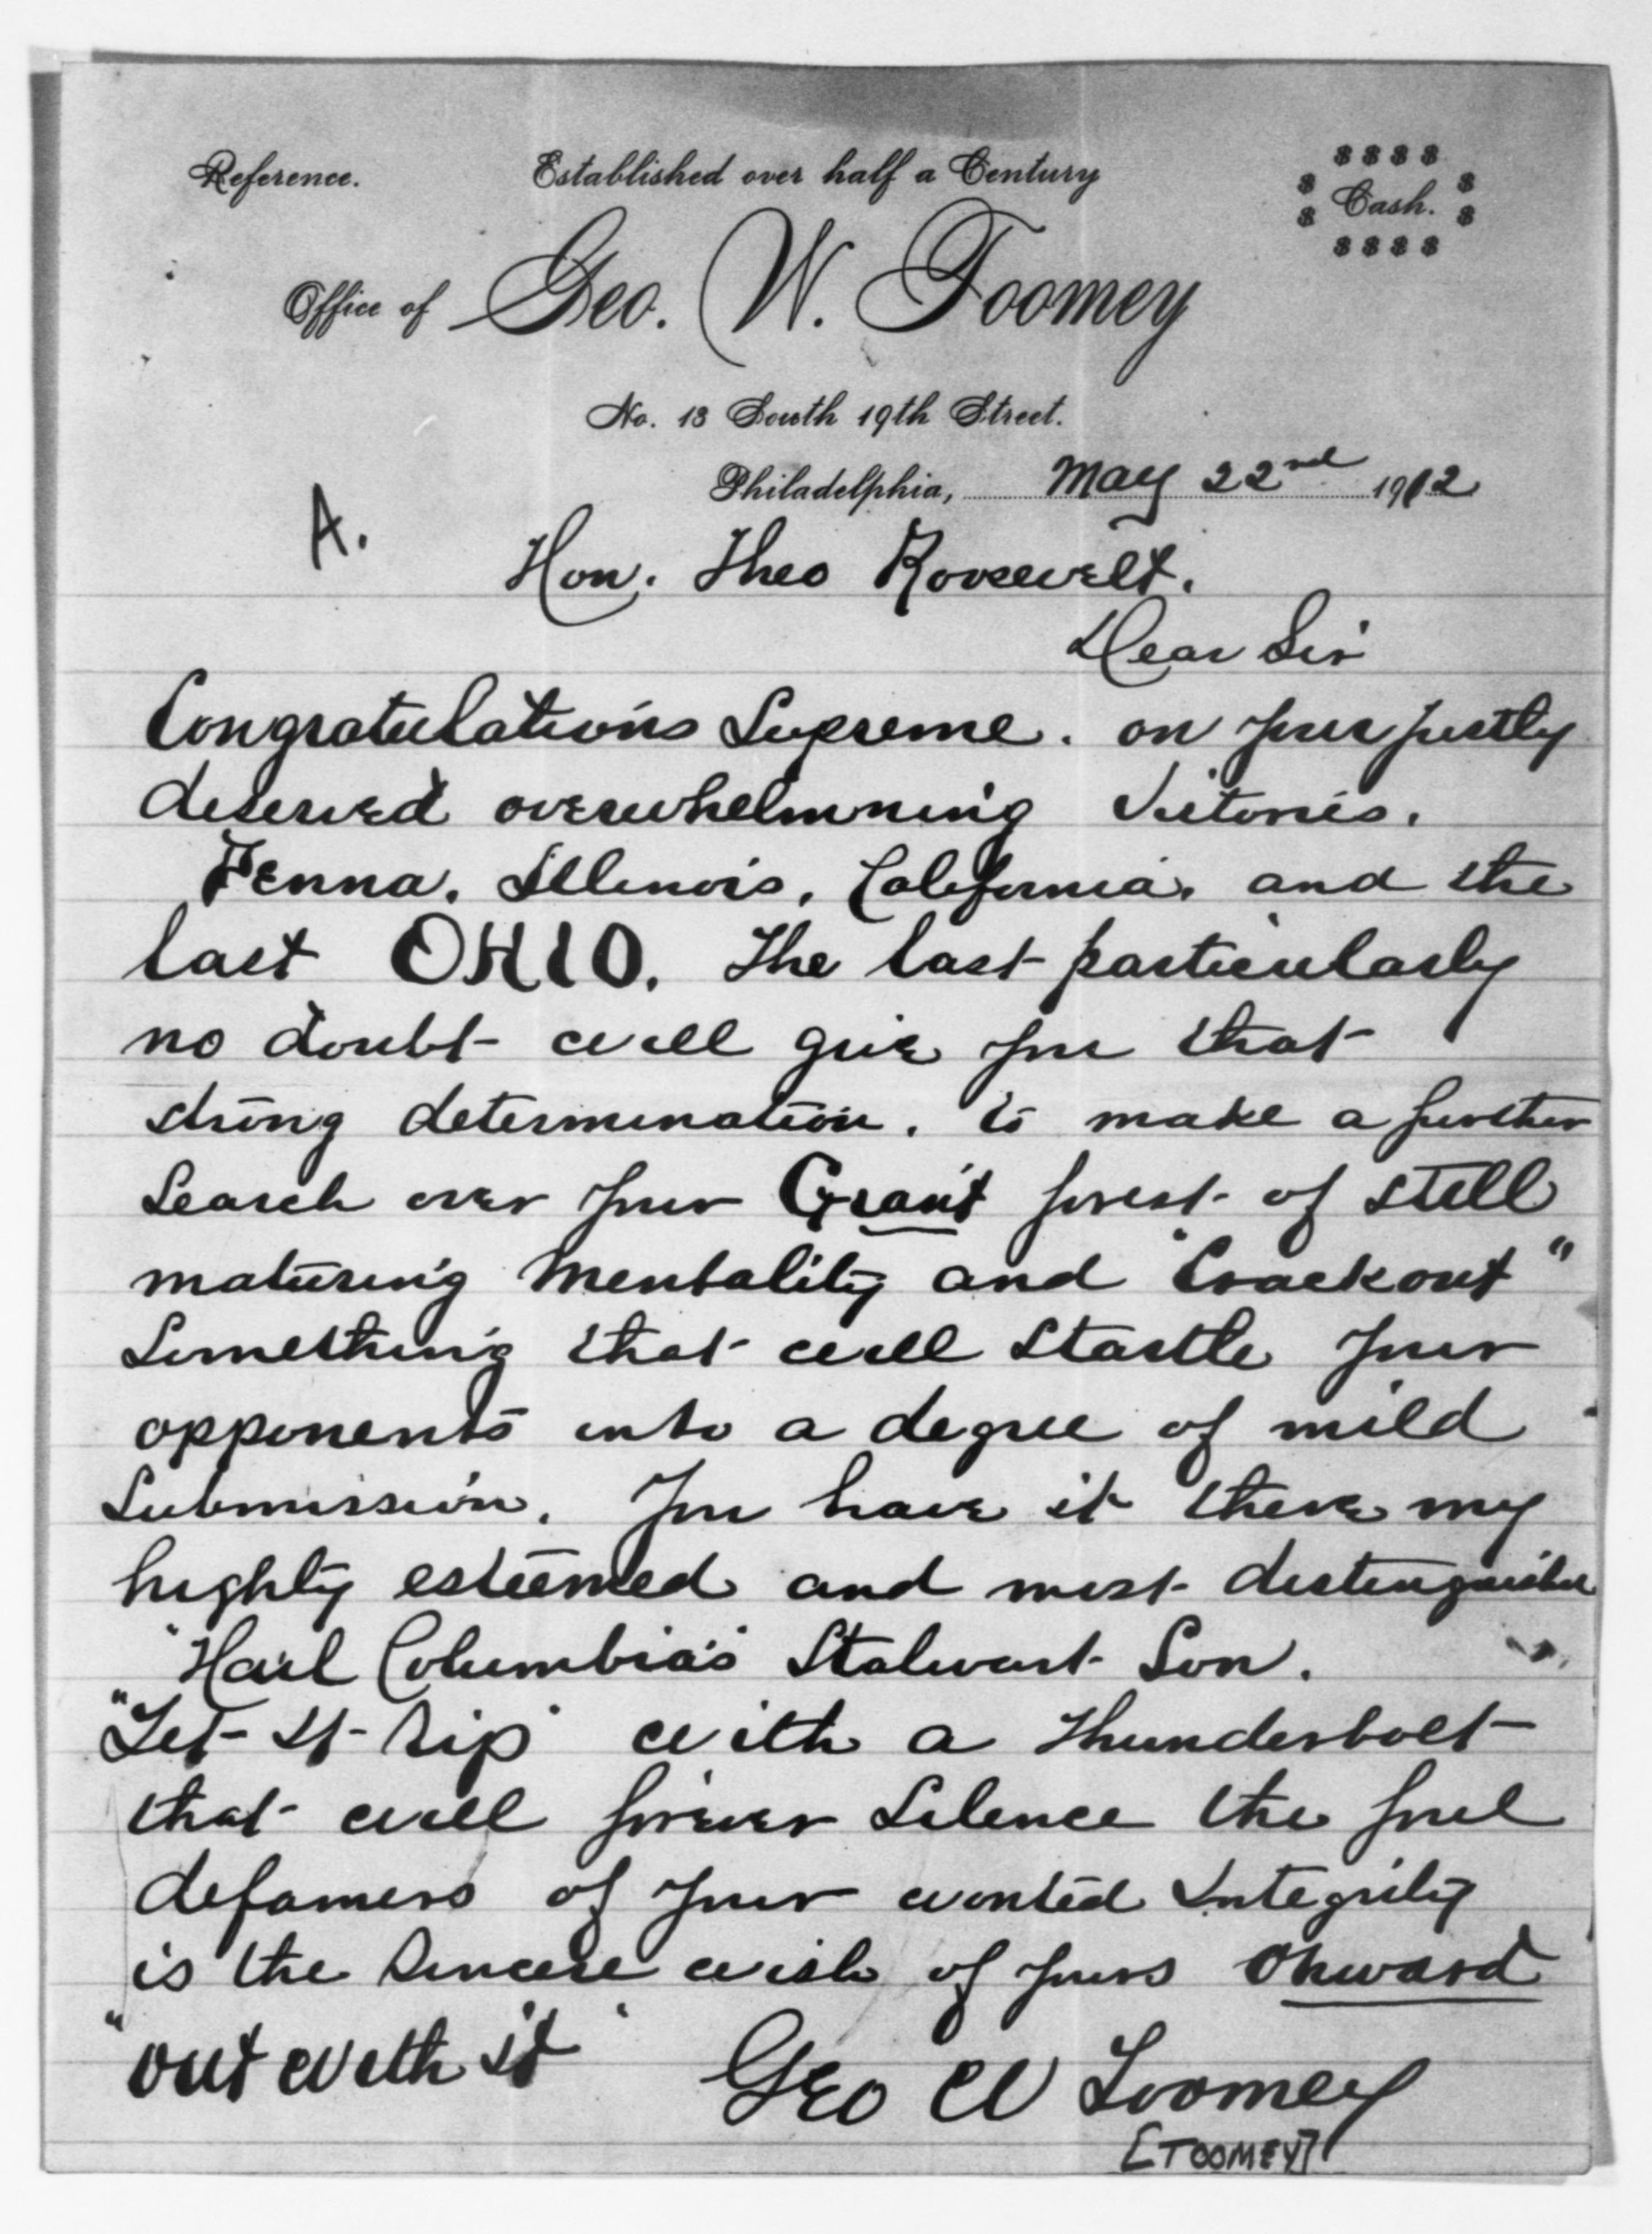 Reference.
Established over half a Century
$ $ $ $
$ Cash. $
$ $
$ $ $ $
Office of Geo. W. Toomey
No. 13 South 19th Street.
Philadelphia, May 22nd 1912
A.
Hon. Theo Roosevelt.
Dear Sir
Congratulations Supreme. on your justly
deserved overwhelmning Victories.
Penna. Illinois, California. and the
last OHIO. The last particularly
no doubt will give you that
strong determination. to make a further
Search over your Giant forest of still
maturing Mentality and "Crack out"
Something that will Startle your
opponents into a degree of mild
Submission. You have it there my
highly esteemed and most distinguished
"Hail Columbia's Stalwart Son.
"Let It rip" with a Thunderbolt
that will forever Silence the foul
defamers of your wonted Integrity
is the Sincere wish of yours Onward
"out with it" Geo W Toomey
[TOOMEY]